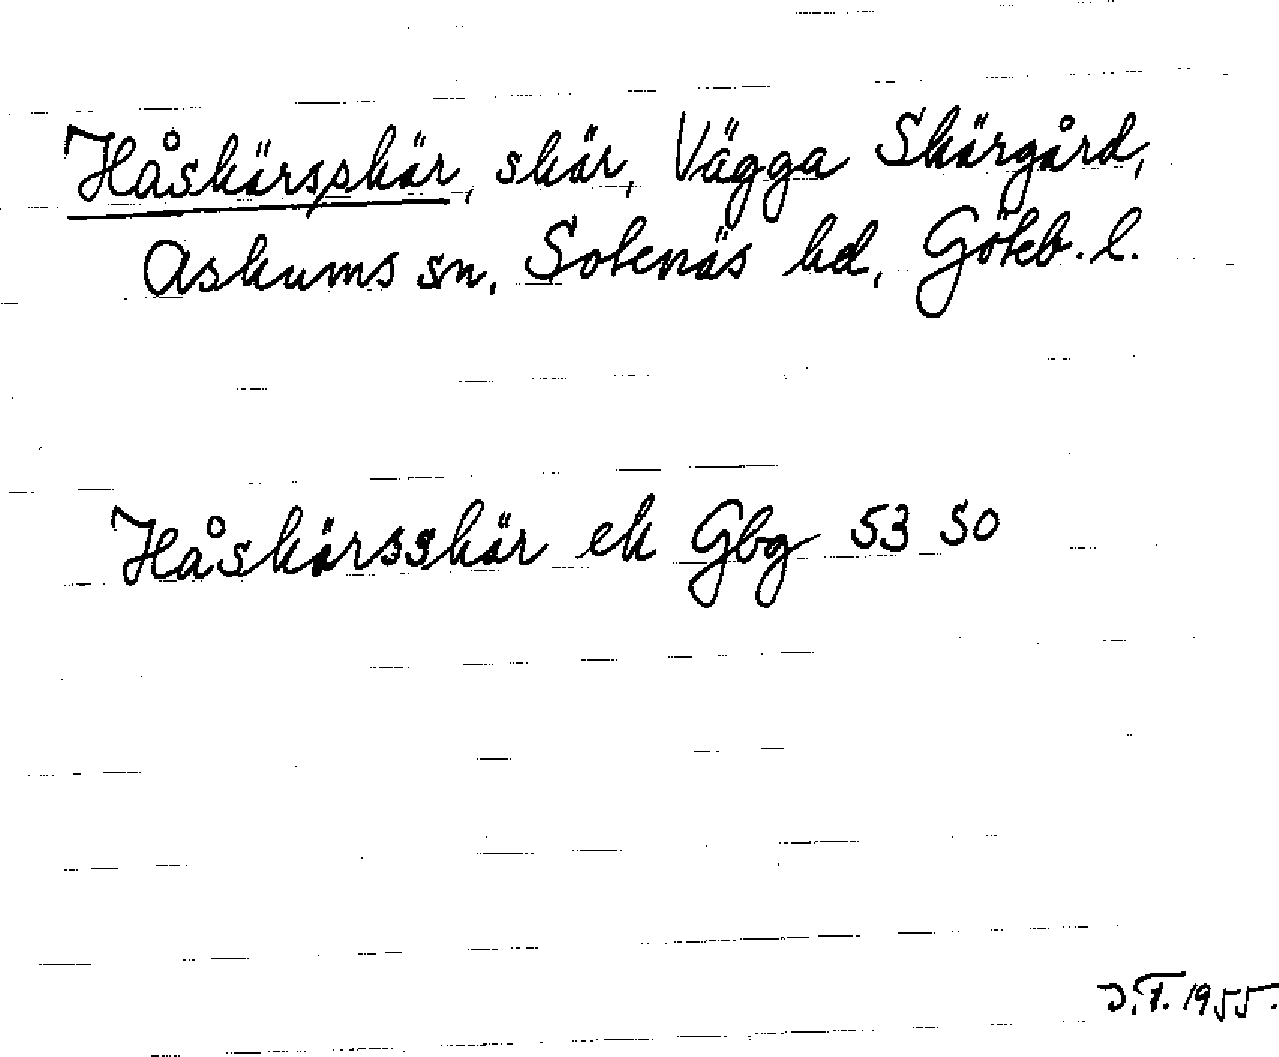 Håskärsskär, skär, Vägga Skärgård,
Askums sn, Sotenäs hd, Göteb. l.
Håskärsskär ek Gbg 53 SO
D.F. 1955.